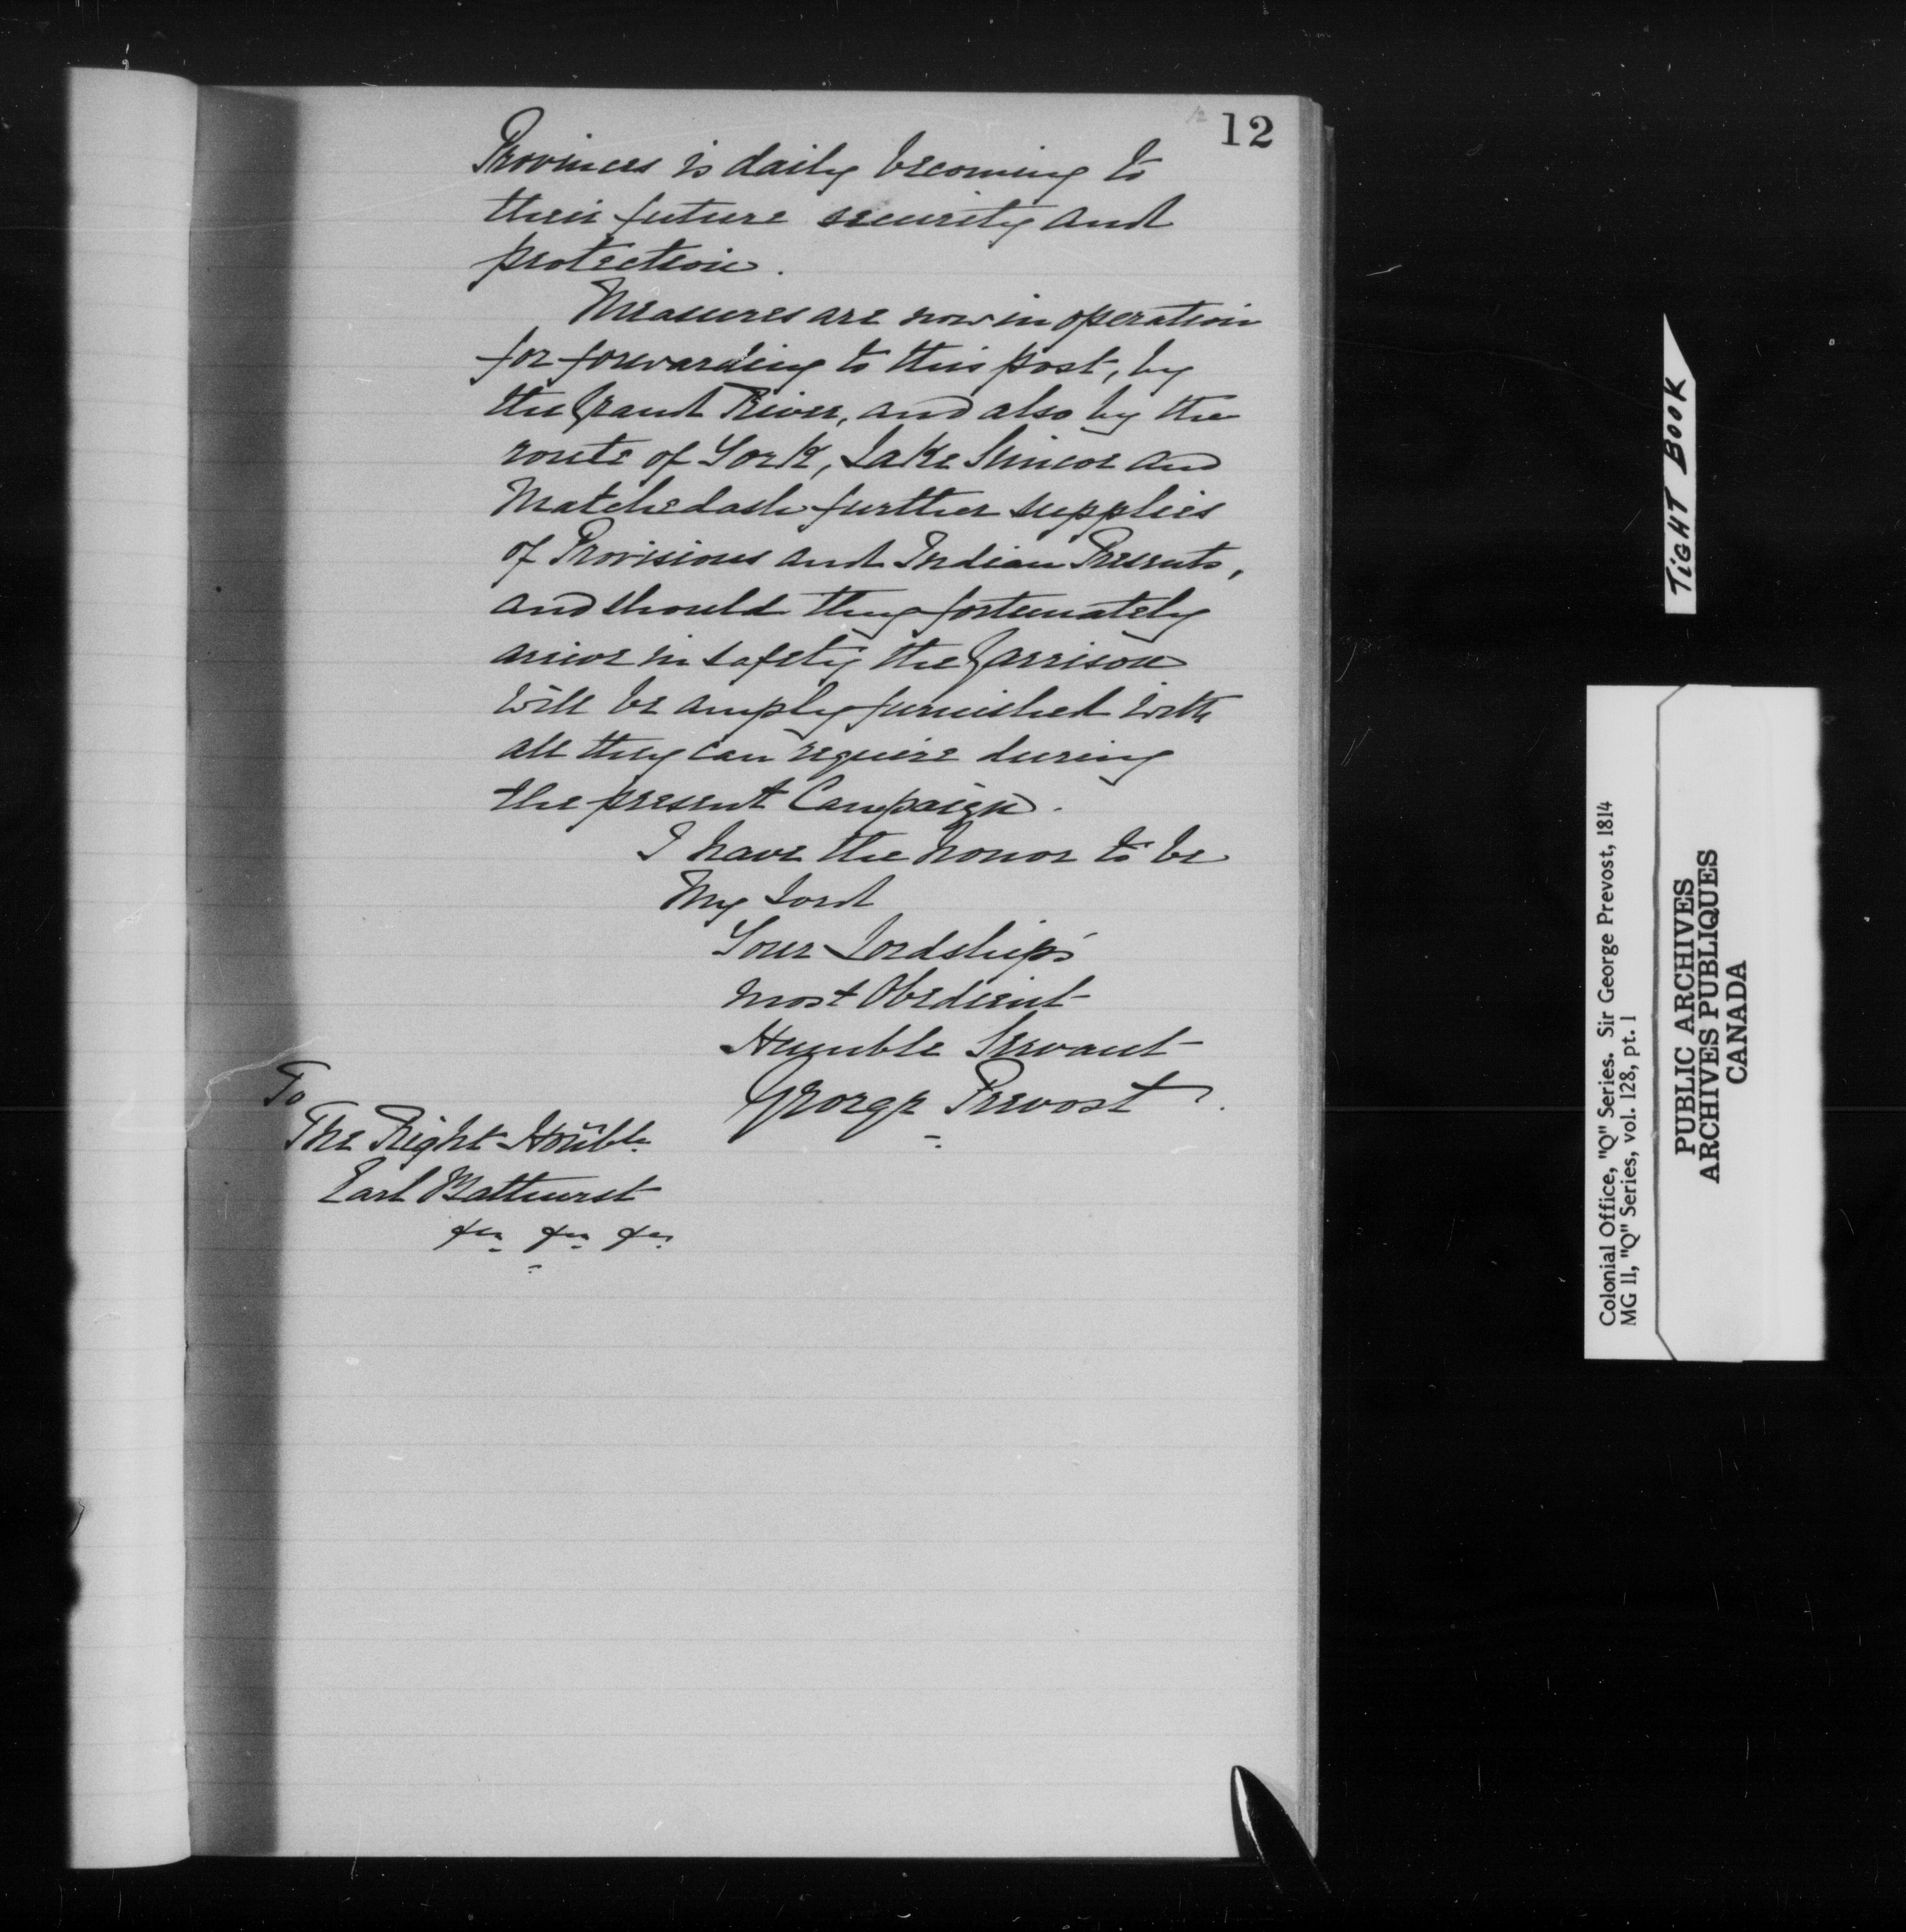 12
Provinces is daily becoming to
their future security and
protection.
Measures are now in operation
for forwarding to this post, by
the Grand River, and also by the
route of York, Lake Simcoe and
Matchedash further supplies
of Provisions and Indian Presents,
and should they fortunately
arrive in safety the Garrison
will be amply furnished with
all they can require during
the present Campaign.
I have the honor to be
My Lord
Your Lordship's
most Obedient
Humble Servant
George Prevost.
To
The Right Honble.
Earl Bathurst
&c &c &c
TIGHT BOOK
Colonial Office, "Q" Series. Sir George Prevost, 1814
MG 11, "Q" Series, vol. 128, pt. 1
PUBLIC ARCHIVES
ARCHIVES PUBLIQUES
CANADA